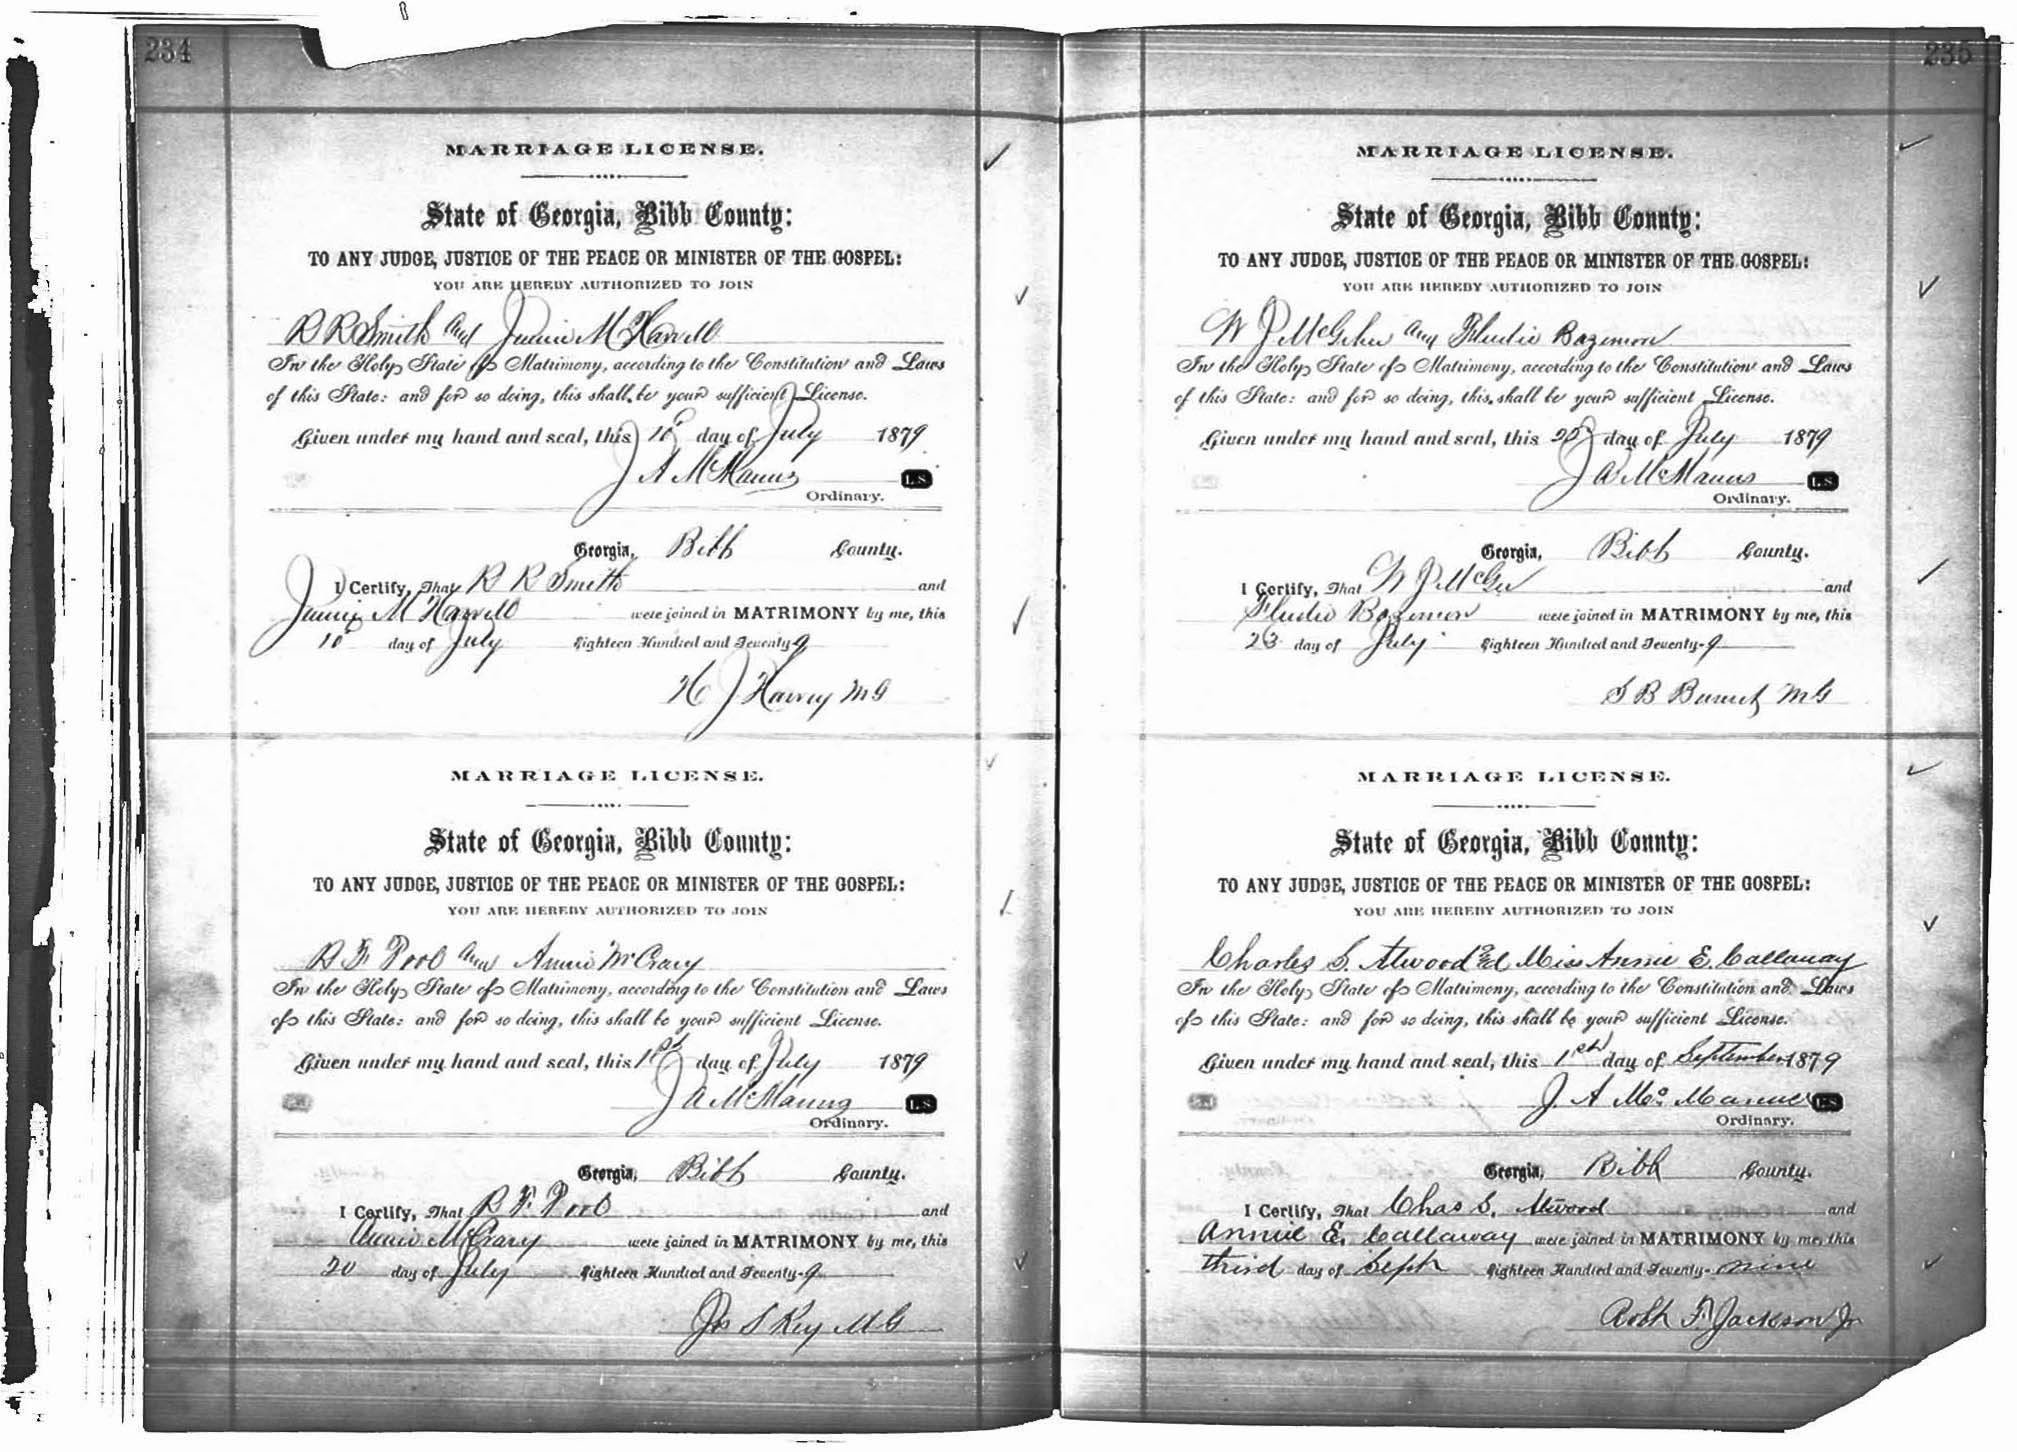 234
MARRIAGE LICENSE.
State of Georgia, Bibb County:
TO ANY JUDGE, JUSTICE OF THE PEACE OR MINISTER OF THE GOSPEL:
YOU ARE HEREBY AUTHORIZED TO JOIN
R R Smith and Jennie M Harrell
In the Holy State of Matrimony, according to the Constitution and Laws
of this State: and for so doing, this shall be your sufficient License.
Given under my hand and seal, this 10 day of July 1879
J A McManus L.S.
Ordinary.
Georgia, Bibb County.
I Certify, That R R Smith and
Jennie M Harrell were joined in MATRIMONY by me, this
10 day of July Eighteen Hundred and Seventy-9
J Harvey MG
MARRIAGE LICENSE.
State of Georgia, Bibb County:
TO ANY JUDGE, JUSTICE OF THE PEACE OR MINISTER OF THE GOSPEL:
YOU ARE HEREBY AUTHORIZED TO JOIN
R F Pool and Annie McCrary
In the Holy State of Matrimony, according to the Constitution and Laws
of this State: and for so doing, this shall be your sufficient License.
Given under my hand and seal, this day of July 1879
J A McManus L.S.
Ordinary.
Georgia, Bibb County.
I Certify, That R F Pool and
Annie McCrary were joined in MATRIMONY by me, this
20 day of July Eighteen Hundred and Seventy-9
Jos S Key MG
235
MARRIAGE LICENSE.
State of Georgia, Bibb County:
TO ANY JUDGE, JUSTICE OF THE PEACE OR MINISTER OF THE GOSPEL:
YOU ARE HEREBY AUTHORIZED TO JOIN
W J McGehee and Bozeman
In the Holy State of Matrimony, according to the Constitution and Laws
of this State: and for so doing, this shall be your sufficient License.
Given under my hand and seal, this day of July 1879
J A McManus L.S.
Ordinary.
Georgia, Bibb County.
I Certify, That W J McGee and
Bozeman were joined in MATRIMONY by me, this
23 day of July Eighteen Hundred and Seventy-9
S B MG
MARRIAGE LICENSE.
State of Georgia, Bibb County:
TO ANY JUDGE, JUSTICE OF THE PEACE OR MINISTER OF THE GOSPEL:
YOU ARE HEREBY AUTHORIZED TO JOIN
Charles S. Atwood and Miss Annie E. Callaway
In the Holy State of Matrimony, according to the Constitution and Laws
of this State: and for so doing, this shall be your sufficient License.
Given under my hand and seal, this 1st day of September 1879
J. A McManus L.S.
Ordinary.
Georgia, Bibb County.
I Certify, That Chas S. Atwood and
Annie E. Callaway were joined in MATRIMONY by me, this
third day of Sept Eighteen Hundred and Seventy-nine
Robt F. Jackson Jr